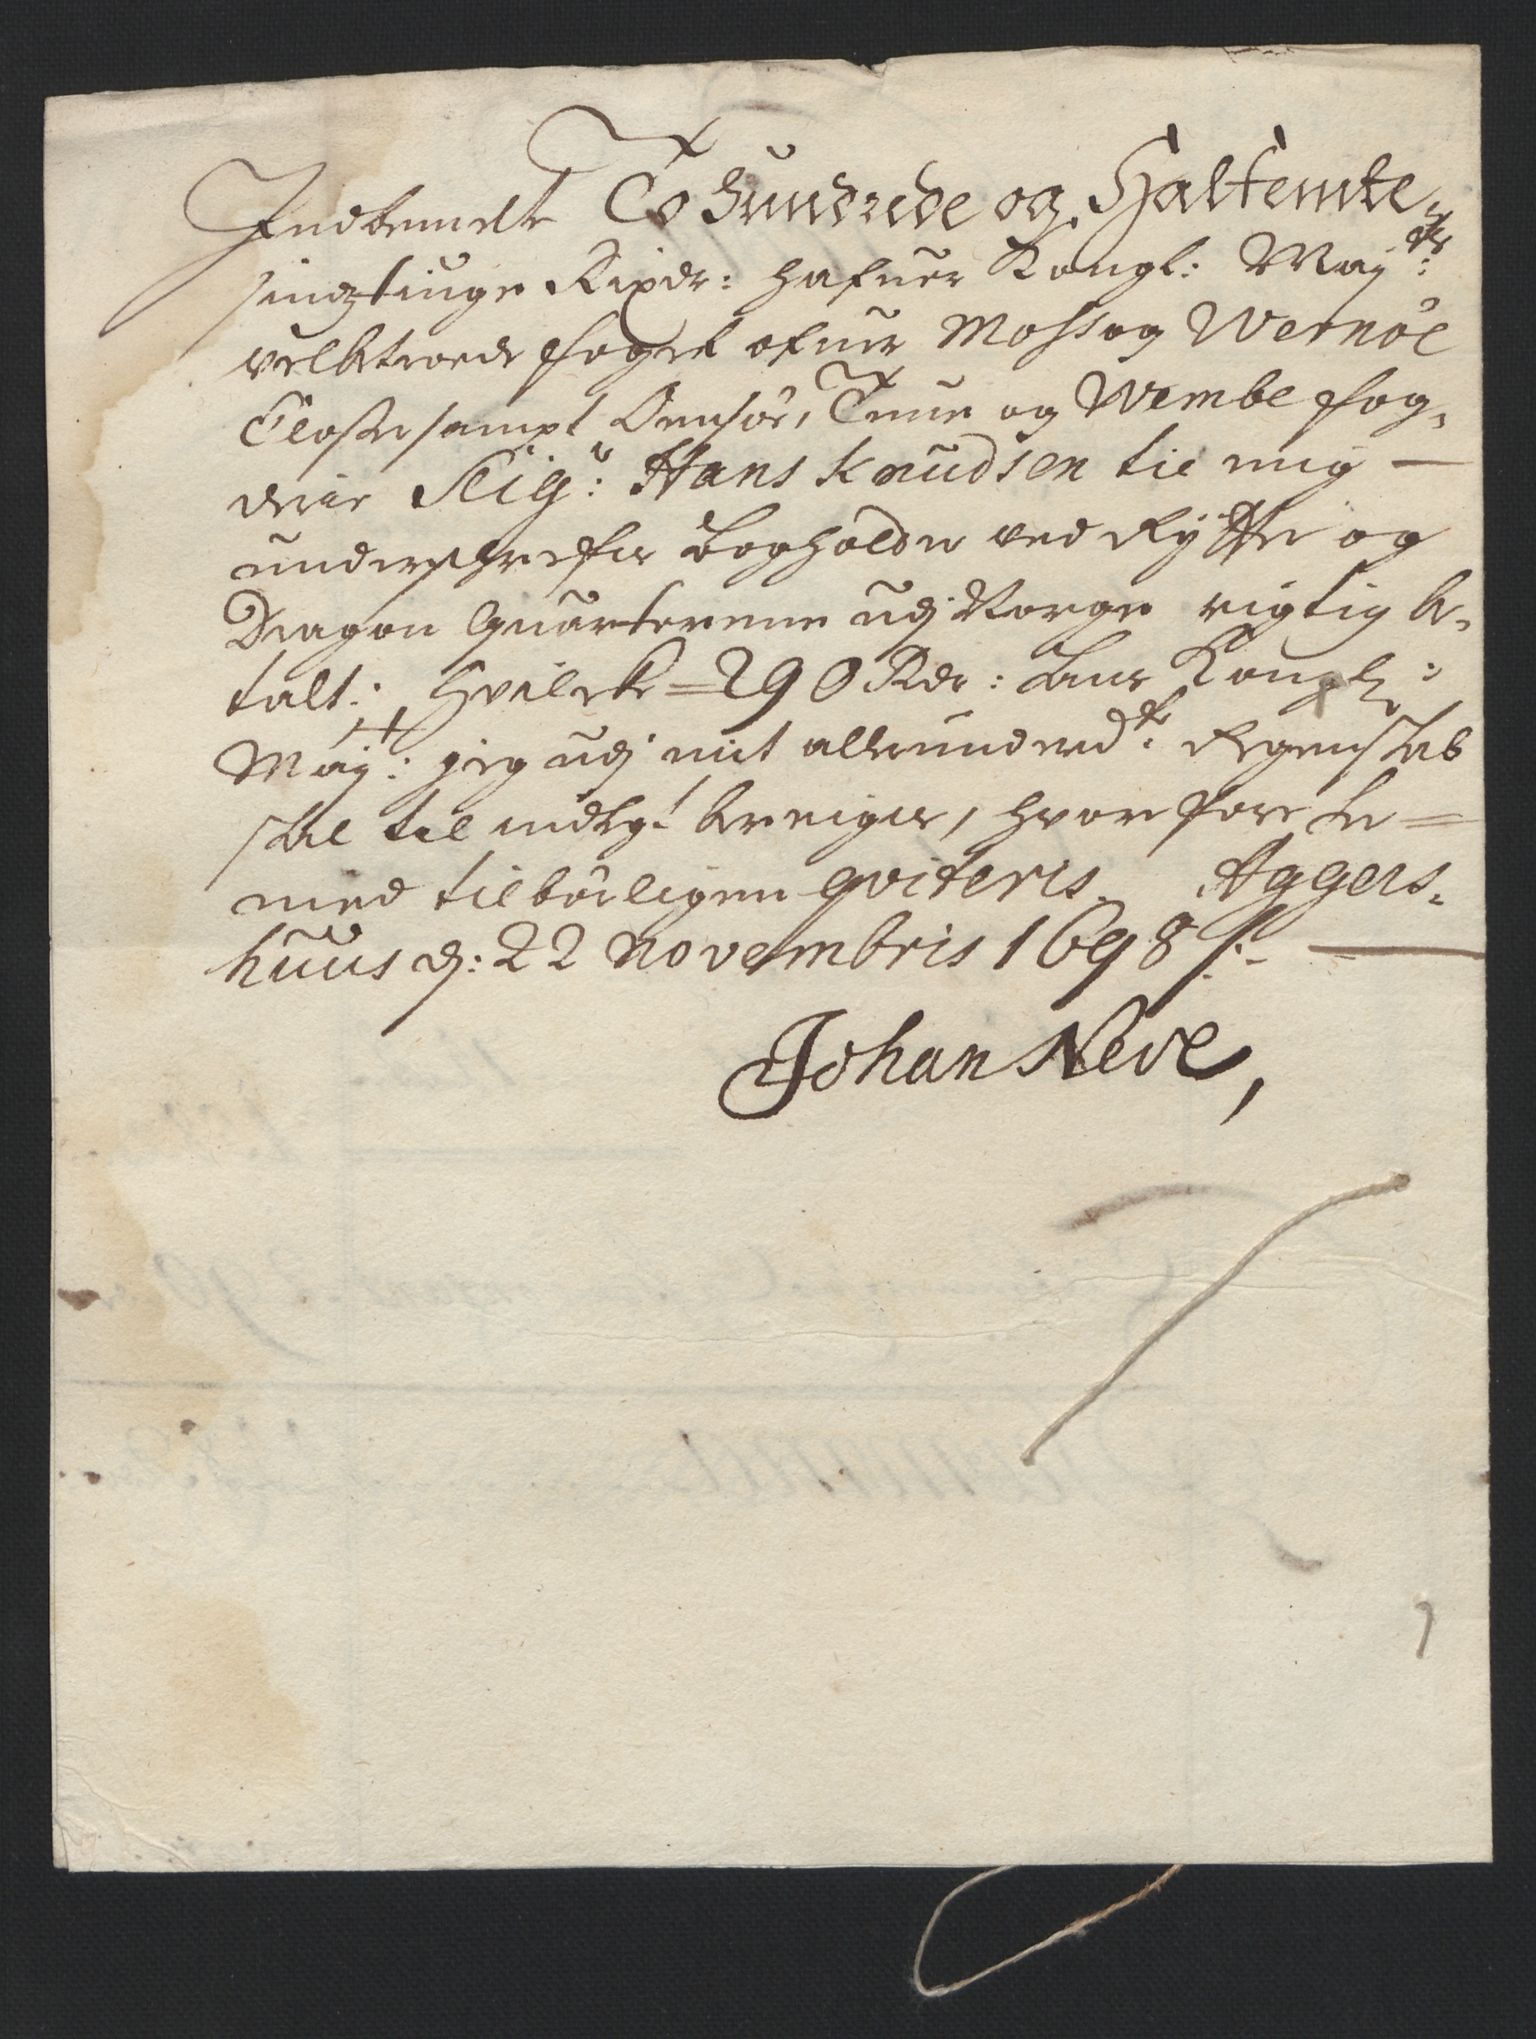 Indbemelte To hundrede og Halfemte-
sindztiuge Rixdr: hafuer Kongl: Mayts:
velbetroede foget ofuer Moss og Wernöe
Closter sampt Onsöe, Tune og Wembe fog-
derie Seigr: Hans Knudsen til mig
underschrefne Bogholder ved Rytter og
Dragon Quarterene udj Norge rigtig be-
talt: hvilcke = 290 Rdr: hans Kongl:
Mayt: jeg udj mit allerunderd: Regenskab
skal til indtegt bereigne, hvorfore her=
med tilbörligen qviteris. Aggers-
huus d: 22 Novembris 1698
Johan Neve,